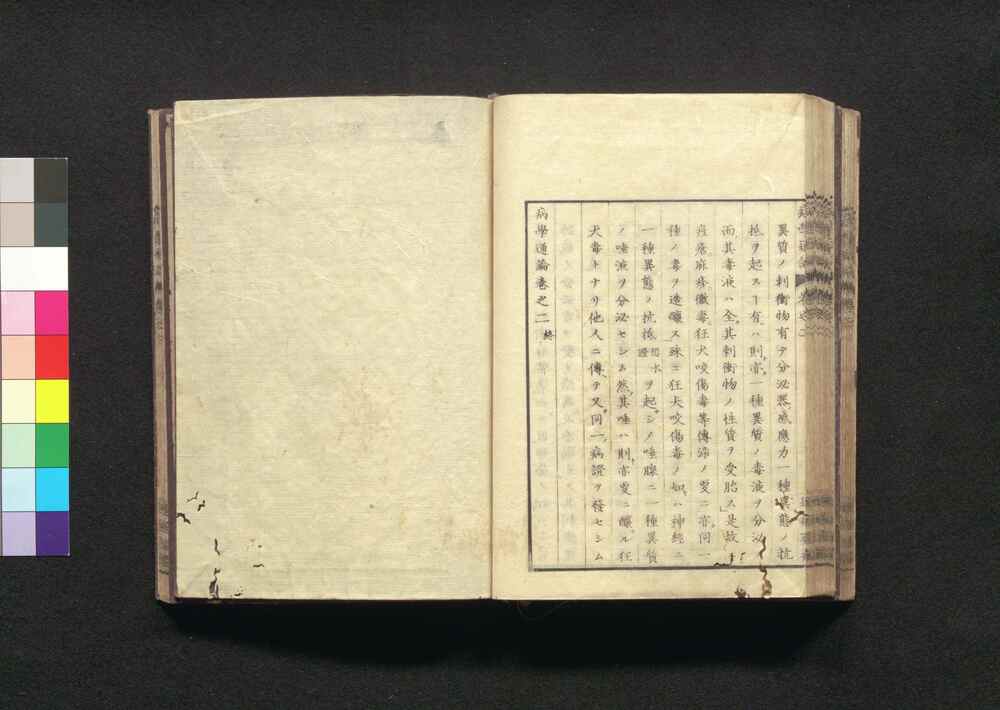 異質ノ刺衝物有テ分泌器感應力一種異態ノ抗
抵ヲ起スヿ有レハ則亦一種異質ノ毒液ヲ分泌
而其毒液ハ全其刺衝物ノ性質ヲ受胎ス是故
痘瘡麻疹黴毒狂犬咬傷毒等傳染ノ更ニ亦同一
種ノ毒ヲ造釀ス殊ニ狂犬咬傷毒ノ如ハ神經ニ
一種異態ノ抗抵恐水證ヲ起シメ唾腺ニ一種異質
ノ唾液ヲ分泌セシム然其唾ハ則亦更ニ釀ル狂
犬毒トナリ他人ニ傳テ又同一病證ヲ發セシム
病學通論巻之二 終